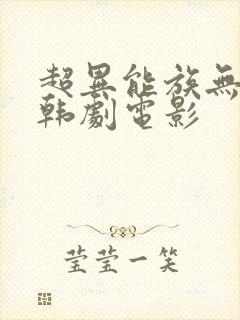 超異能族無
韩劇電影
莹莹一笑